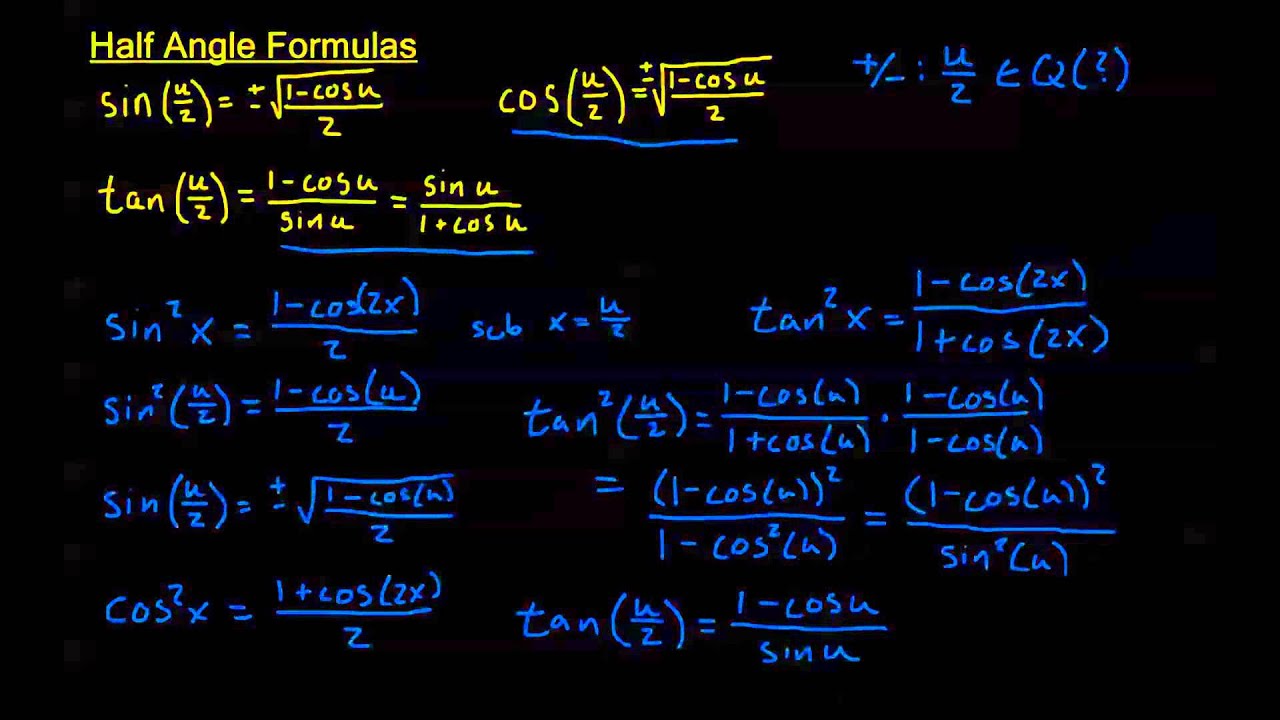 Half Angle Formulas
sin(u/2) = ±√(1-cosu)/2    cos(u/2) = ±√(1-cosu)/2    +/- : u/2 ∈ Q(?)
tan(u/2) = (1-cosu)/(sinu) = (sinu)/(1+cosu)
sin²x = (1-cos(2x))/2    sub x = u/2    tan²x = (1-cos(2x))/(1+cos(2x))
sin²(u/2) = (1-cos(u))/2    tan²(u/2) = (1-cos(u))/(1+cos(u)) · (1-cos(u))/(1-cos(u))
sin(u/2) = ±√(1-cos(u))/2    = (1-cos(u))²/(1-cos²(u)) = (1-cos(u))²/(sin²(u))
cos²x = (1+cos(2x))/2    tan(u/2) = (1-cosu)/(sinu)